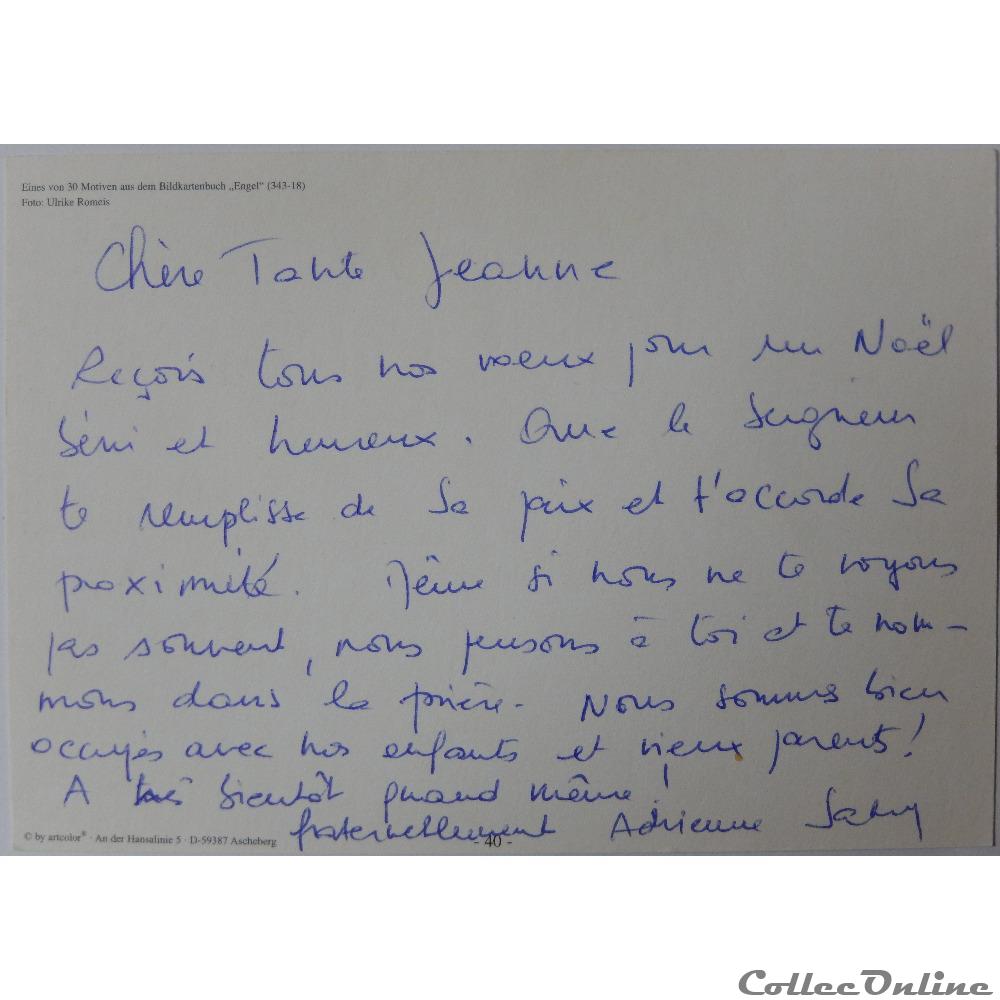 Eines von 30 Motiven aus dem Bildkartenbuch „Engel“ (343-18)
Foto: Ulrike Romeis
Chère Tante Jeanne
Reçois tous nos voeux pour un Noël
béni et heureux. Que le Seigneur
te remplisse de Sa paix et t'accorde Sa
proximité. Même si nous ne te voyons
pas souvent, nous pensons à toi et te nom-
mons dans la prière. Nous sommes bien
occupés avec nos enfants et vieux parents!
A très bientôt quand même!
fraternellement Adrienne
© by artcolor® · An der Hansalinie 5 · D-59387 Ascheberg
- 40 -
CollecOnline